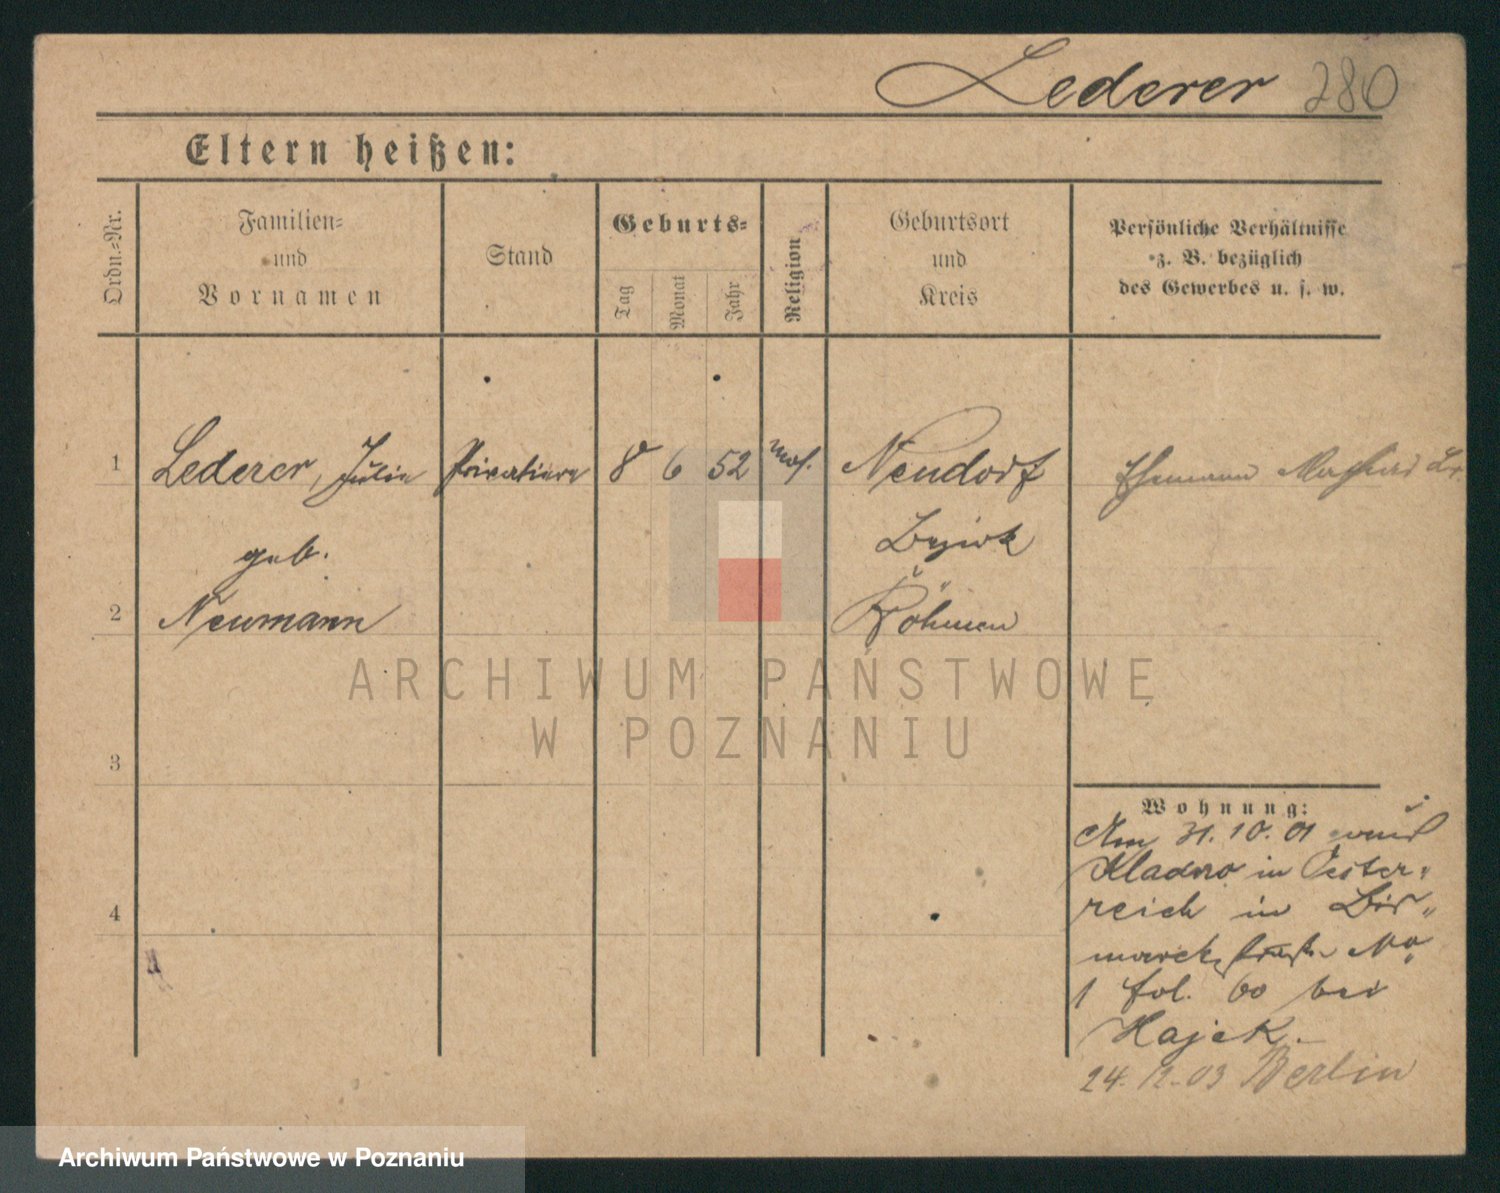 Lederer 280
Eltern heißen:
Ordn.-Nr.
Familien-
und
Vornamen
Stand
Geburts-
Tag
Monat
Jahr
Religion
Geburtsort
und
Kreis
Persönliche Verhältnisse
z. B. bezüglich
des Gewerbes u. s. w.
1 Lederer, Julie Privatiere 8 6 52 mos. Neudorf Ehemann
geb. Bezirk
2 Neumann Böhmen
ARCHIWUM PAŃSTWOWE
W POZNANIU
3
Wohnung:
Am 31.10.01 nach
Kladno in Oester-
reich in Bis-
4
marckstraße No
1 fol. 60 bei
Hajek.
24.12.03 Berlin
Archiwum Państwowe w Poznaniu